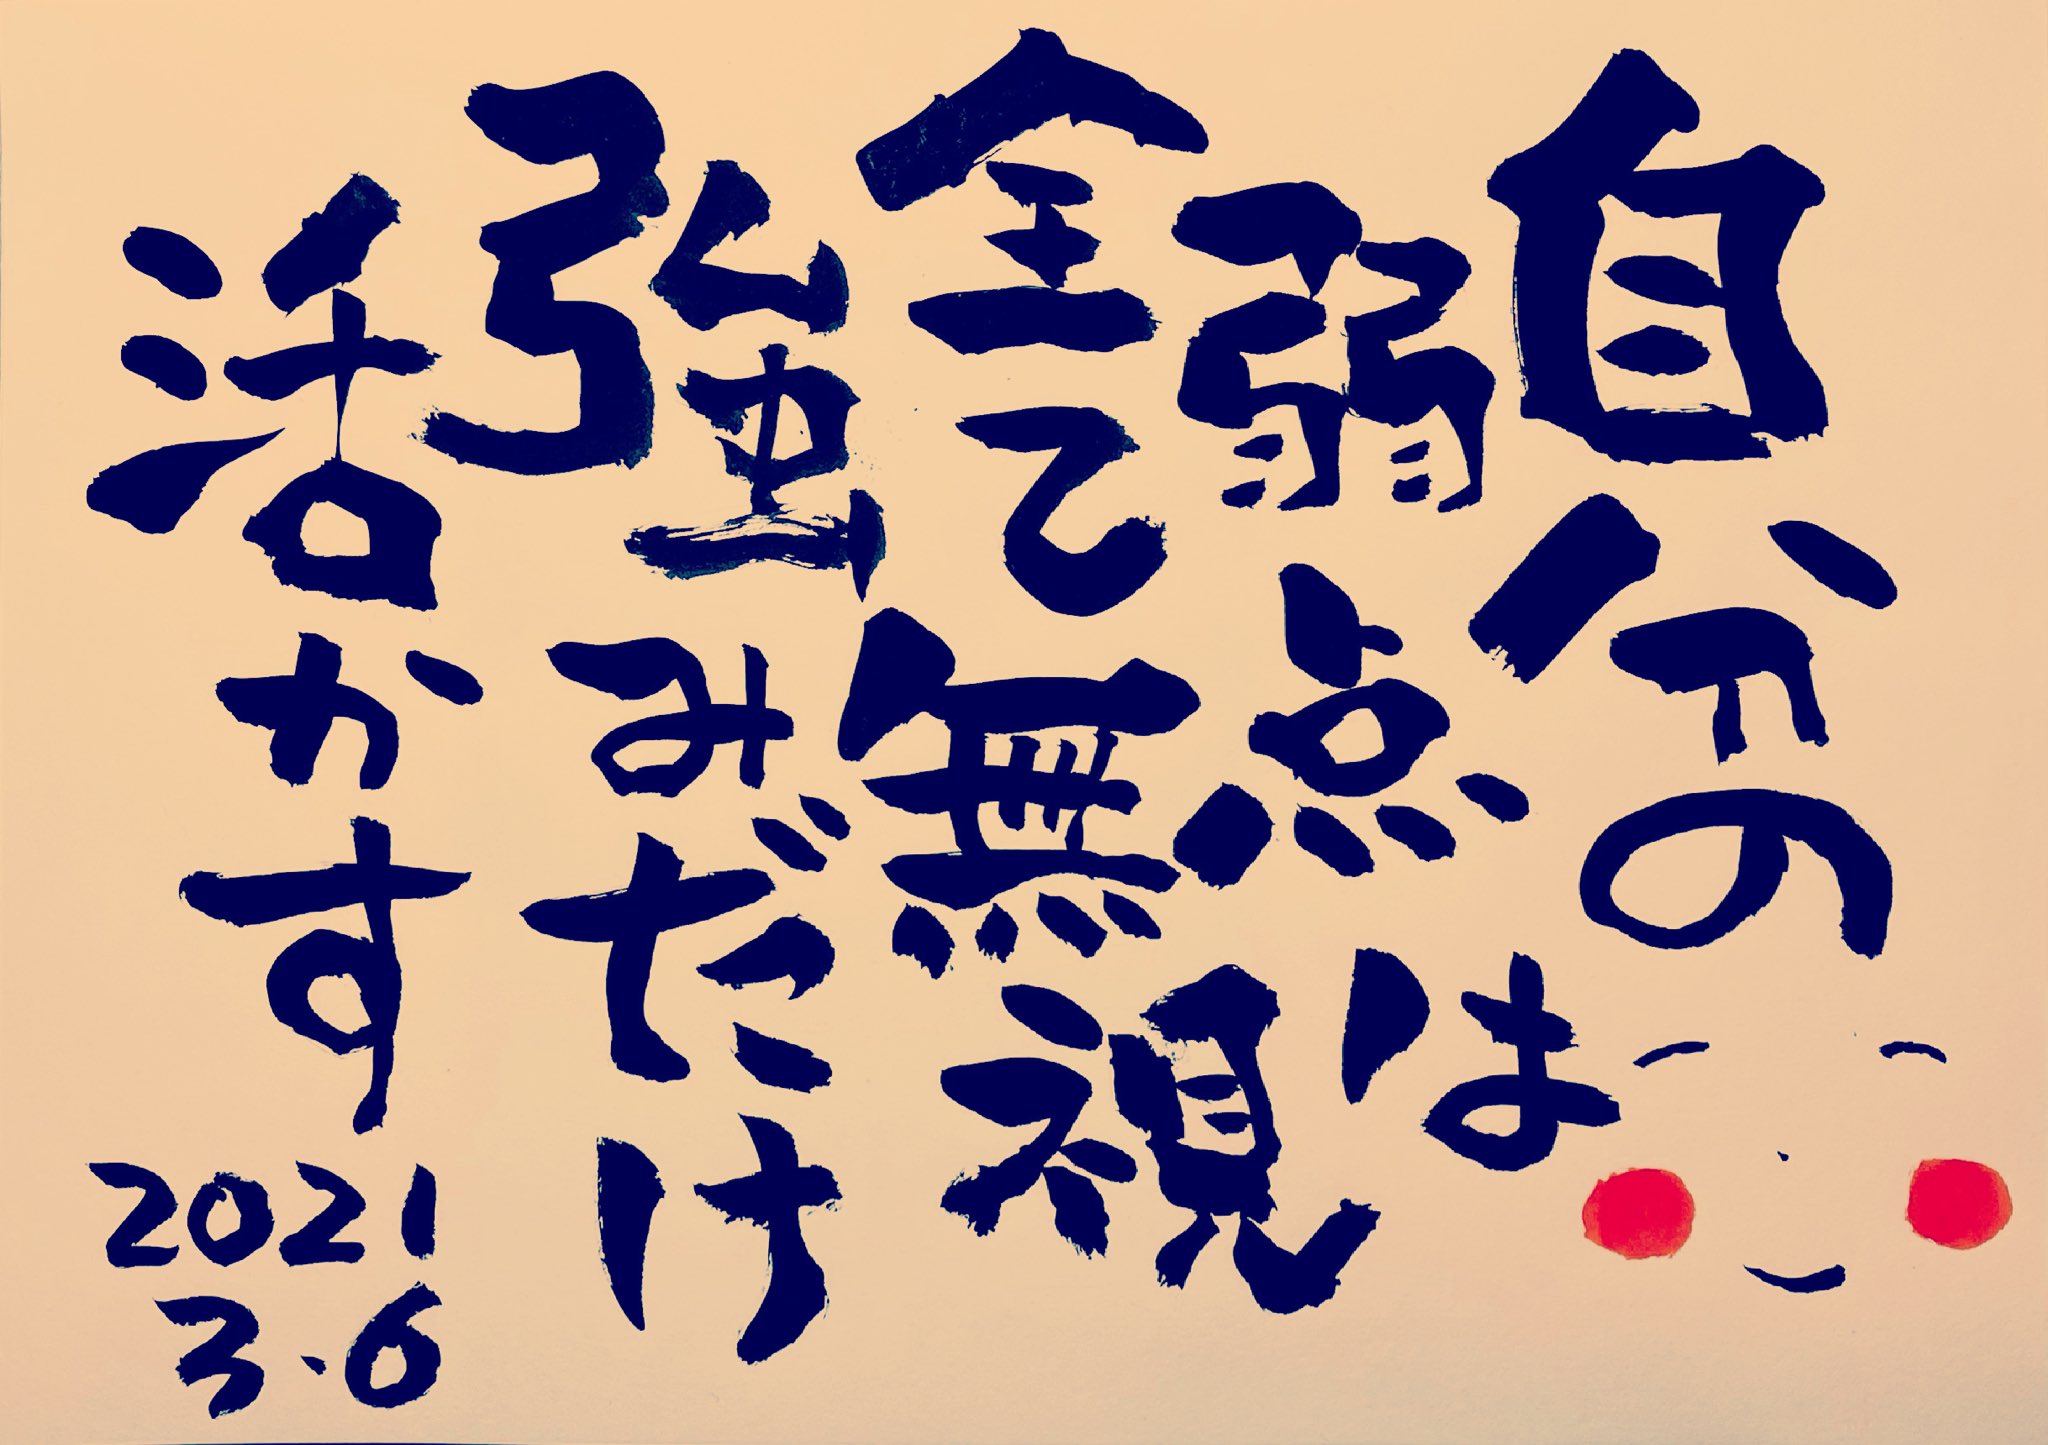 自分の
弱点は
全て無視
強みだけ
活かす
2021
3.6